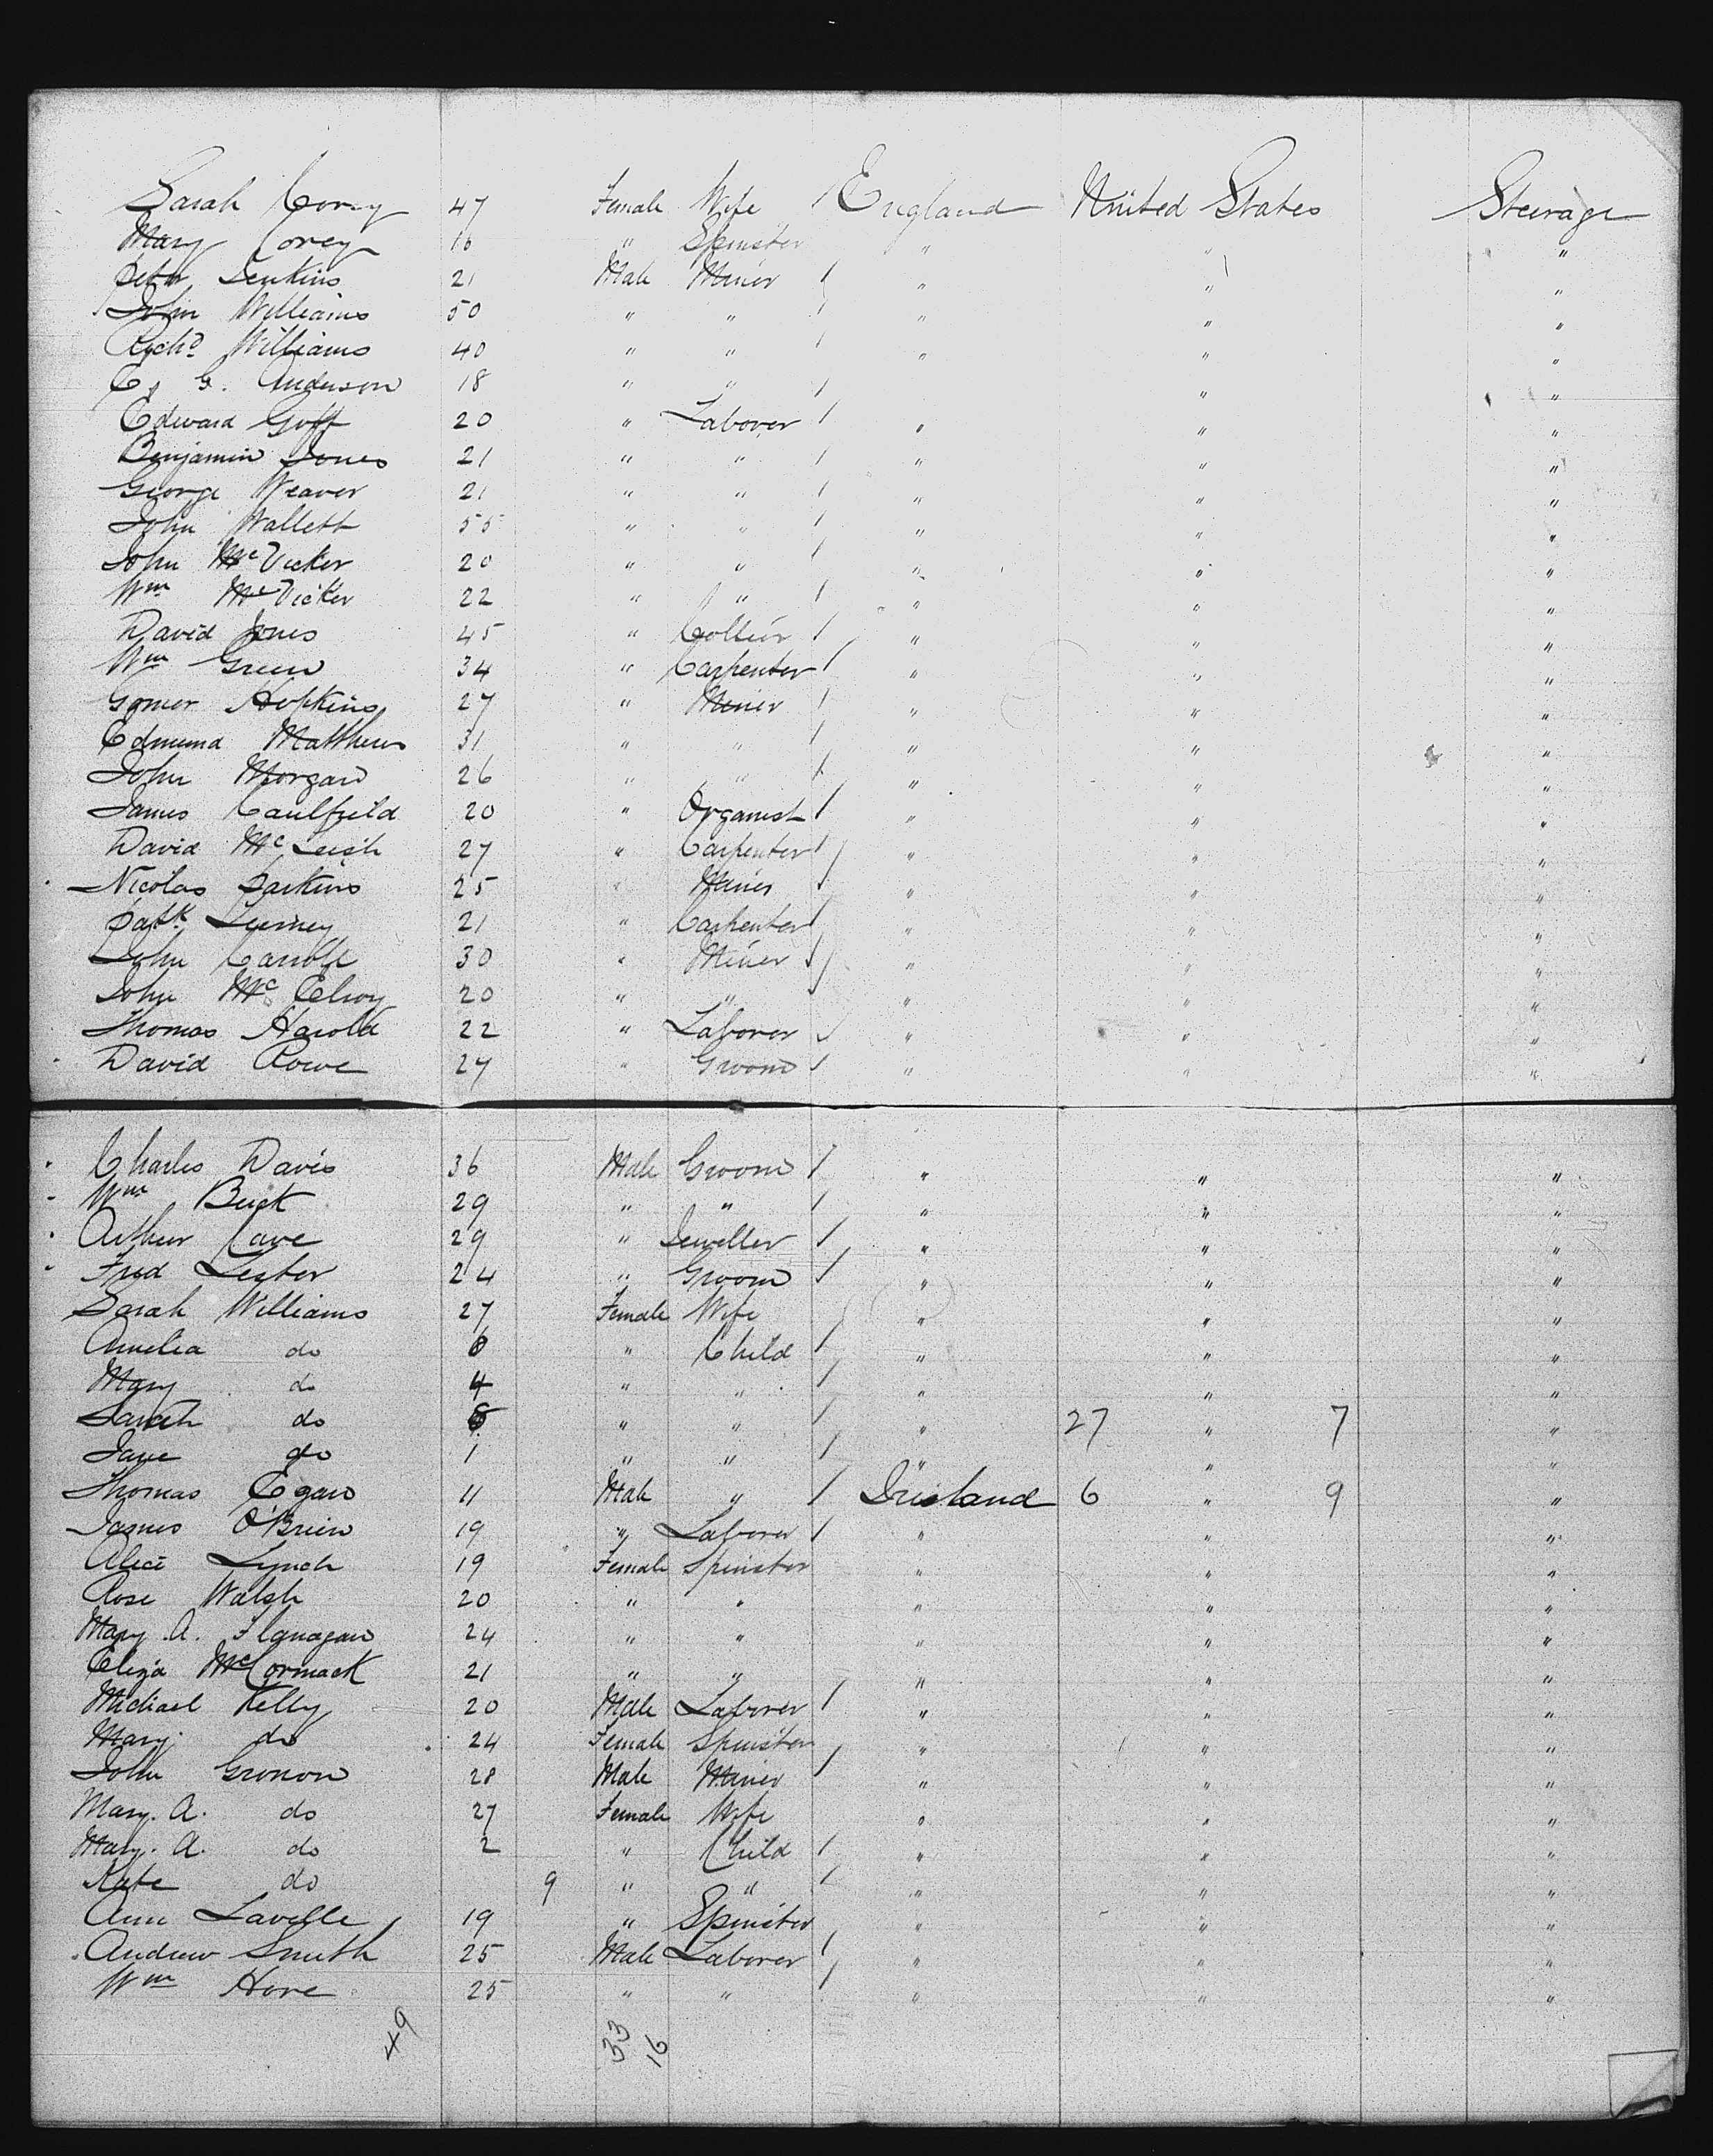 Sarah Corey 47 Female Wife / England United States Steerage
Mary Corey 16 " Spinster " " "
Peter Jenkins 21 Male Miner / " " "
John Williams 50 " " / " " "
Richd Williams 40 " " / " " "
G. Anderson 18 " " / " "
Edward Goff 20 " Laborer / " " "
Benjamin Jones 21 " " / " " "
George Weaver 21 " " / " " "
John Wallett 55 " " / " " "
John McVicker 20 " " / " " "
Wm McVicker 22 " " / " " "
David Jones 45 " Collier / " " "
Wm Green 34 " Carpenter / " " "
Gomer Hopkins 27 " Miner / " " "
Edmund Matthews 31 " " / " " "
John Morgan 26 " " / " " "
James Caulfield 20 " Organist / " " "
David McLeish 27 " Carpenter / " " "
Nicolas Parkins 25 " Miner / " " "
Patk 21 " Carpenter / " " "
John Carroll 30 " Miner / " " "
John McElroy 20 " " / " " "
Thomas Harold 22 " Laborer / " " "
David Rowe 27 " Groom / " " "
Charles Davis 36 Male Groom / " " "
Wm Buck 29 " " / " " "
Arthur Cave 29 " Jeweller / " " "
Fred Lester 24 " Groom / " " "
Sarah Williams 27 Female Wife " " "
Amelia do 6 " Child / " " "
Mary do 4 " " / " " "
Sarah do " " / " 27 " 7 "
Jane do 1 " " / " " "
Thomas Egan 11 Male " / Ireland 6 " 9 "
James O'Brien 19 " Laborer / " " "
Alice Lynch 19 Female Spinster " " "
Rose Walsh 20 " " " " "
Mary A. Flanagan 24 " " " " "
Eliza McCormack 21 " " " " "
Michael Kelly 20 Male Laborer / " " "
Mary do 24 Female Spinster " " "
John Gronon 28 Male Miner / " " "
Mary. A. do 27 Female Wife " " "
Mary. A. do 2 " Child / " " "
Kate do 9 " " / " " "
Ann Lavelle 19 " Spinster " " "
Andrew Smith 25 Male Laborer / " " "
Wm Hore 25 " " / " " "
49 33
16